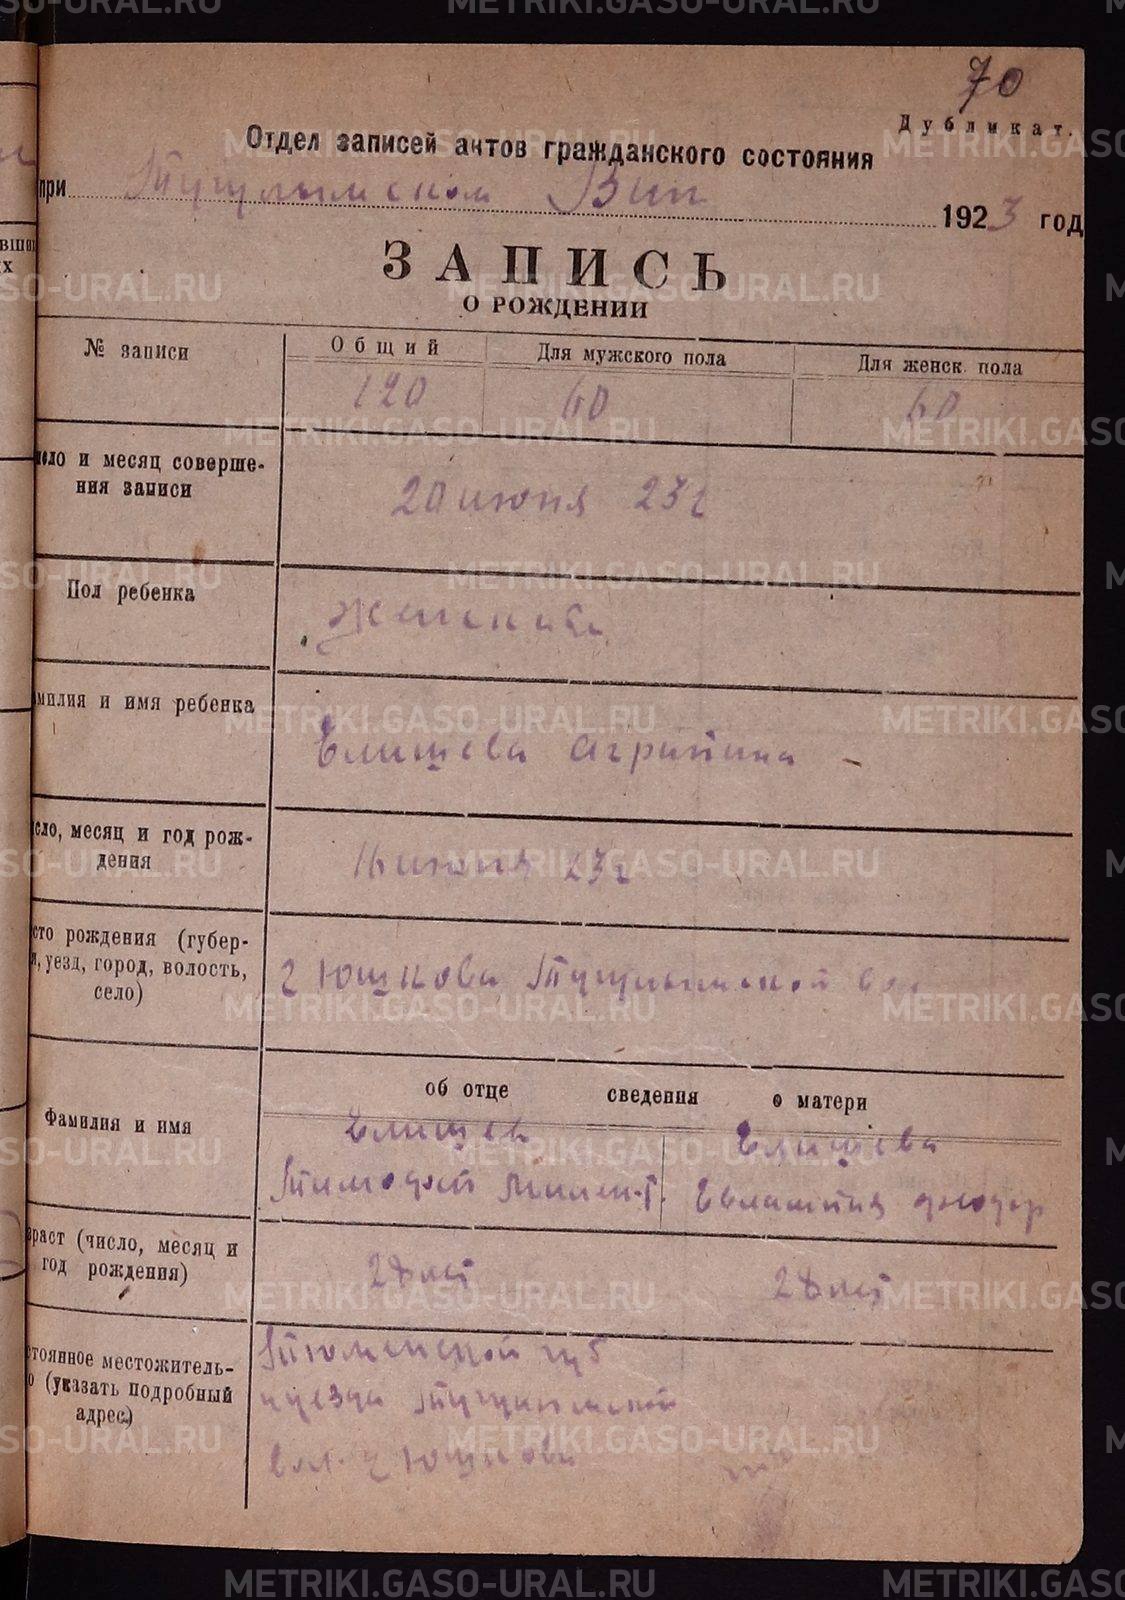 70
Дубликат.
Отдел записей актов гражданского состояния
при Тугулымском Вик 1923 год
ЗАПИСЬ
О РОЖДЕНИИ
№ записи Общий Для мужского пола Для женск. пола
120 60 60
число и месяц соверше-
ния записи
20 июня 23 г
Пол ребенка
женский
милия и имя ребенка
Елишева Агрипина
сло, месяц и год рож-
дения
16 июня 23 г
сто рождения (губер-
я, уезд, город, волость,
село)
Юшкова Тугулымской вол
об отце сведения о матери
Фамилия и имя
Елишев Елишева
Тимофей Евлампия Федор
раст (число, месяц и
год рождения)
28 лет 28 лет
стоянное местожитель-
о (указать подробный
адрес)
Тюменской губ
и уезда Тугулымской
вол. Юшкова
METRIKI.GASO-URAL.RU